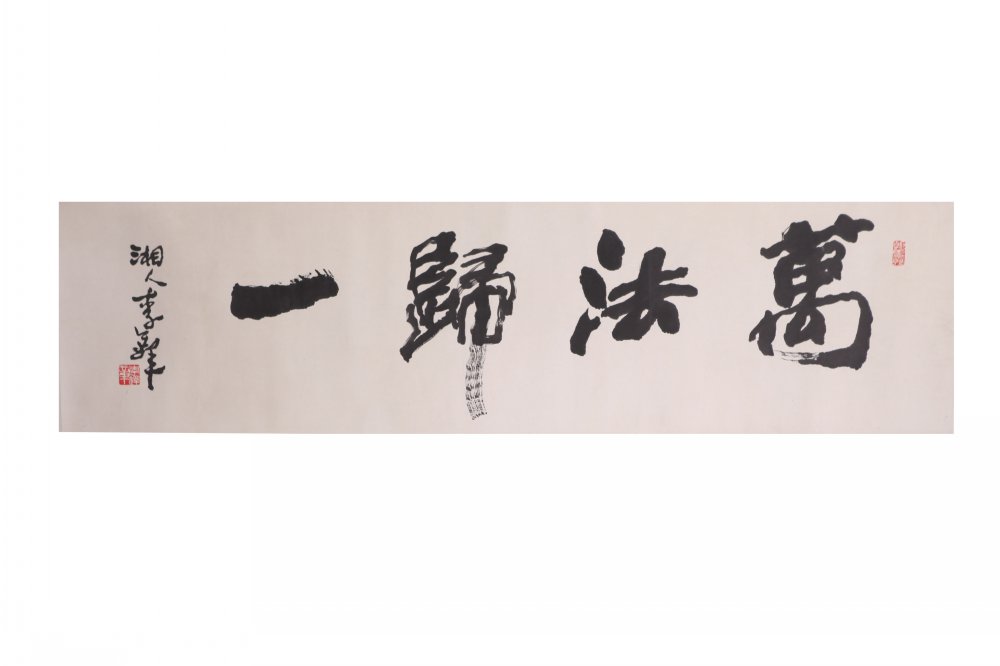 萬法歸一
湘人李鐸